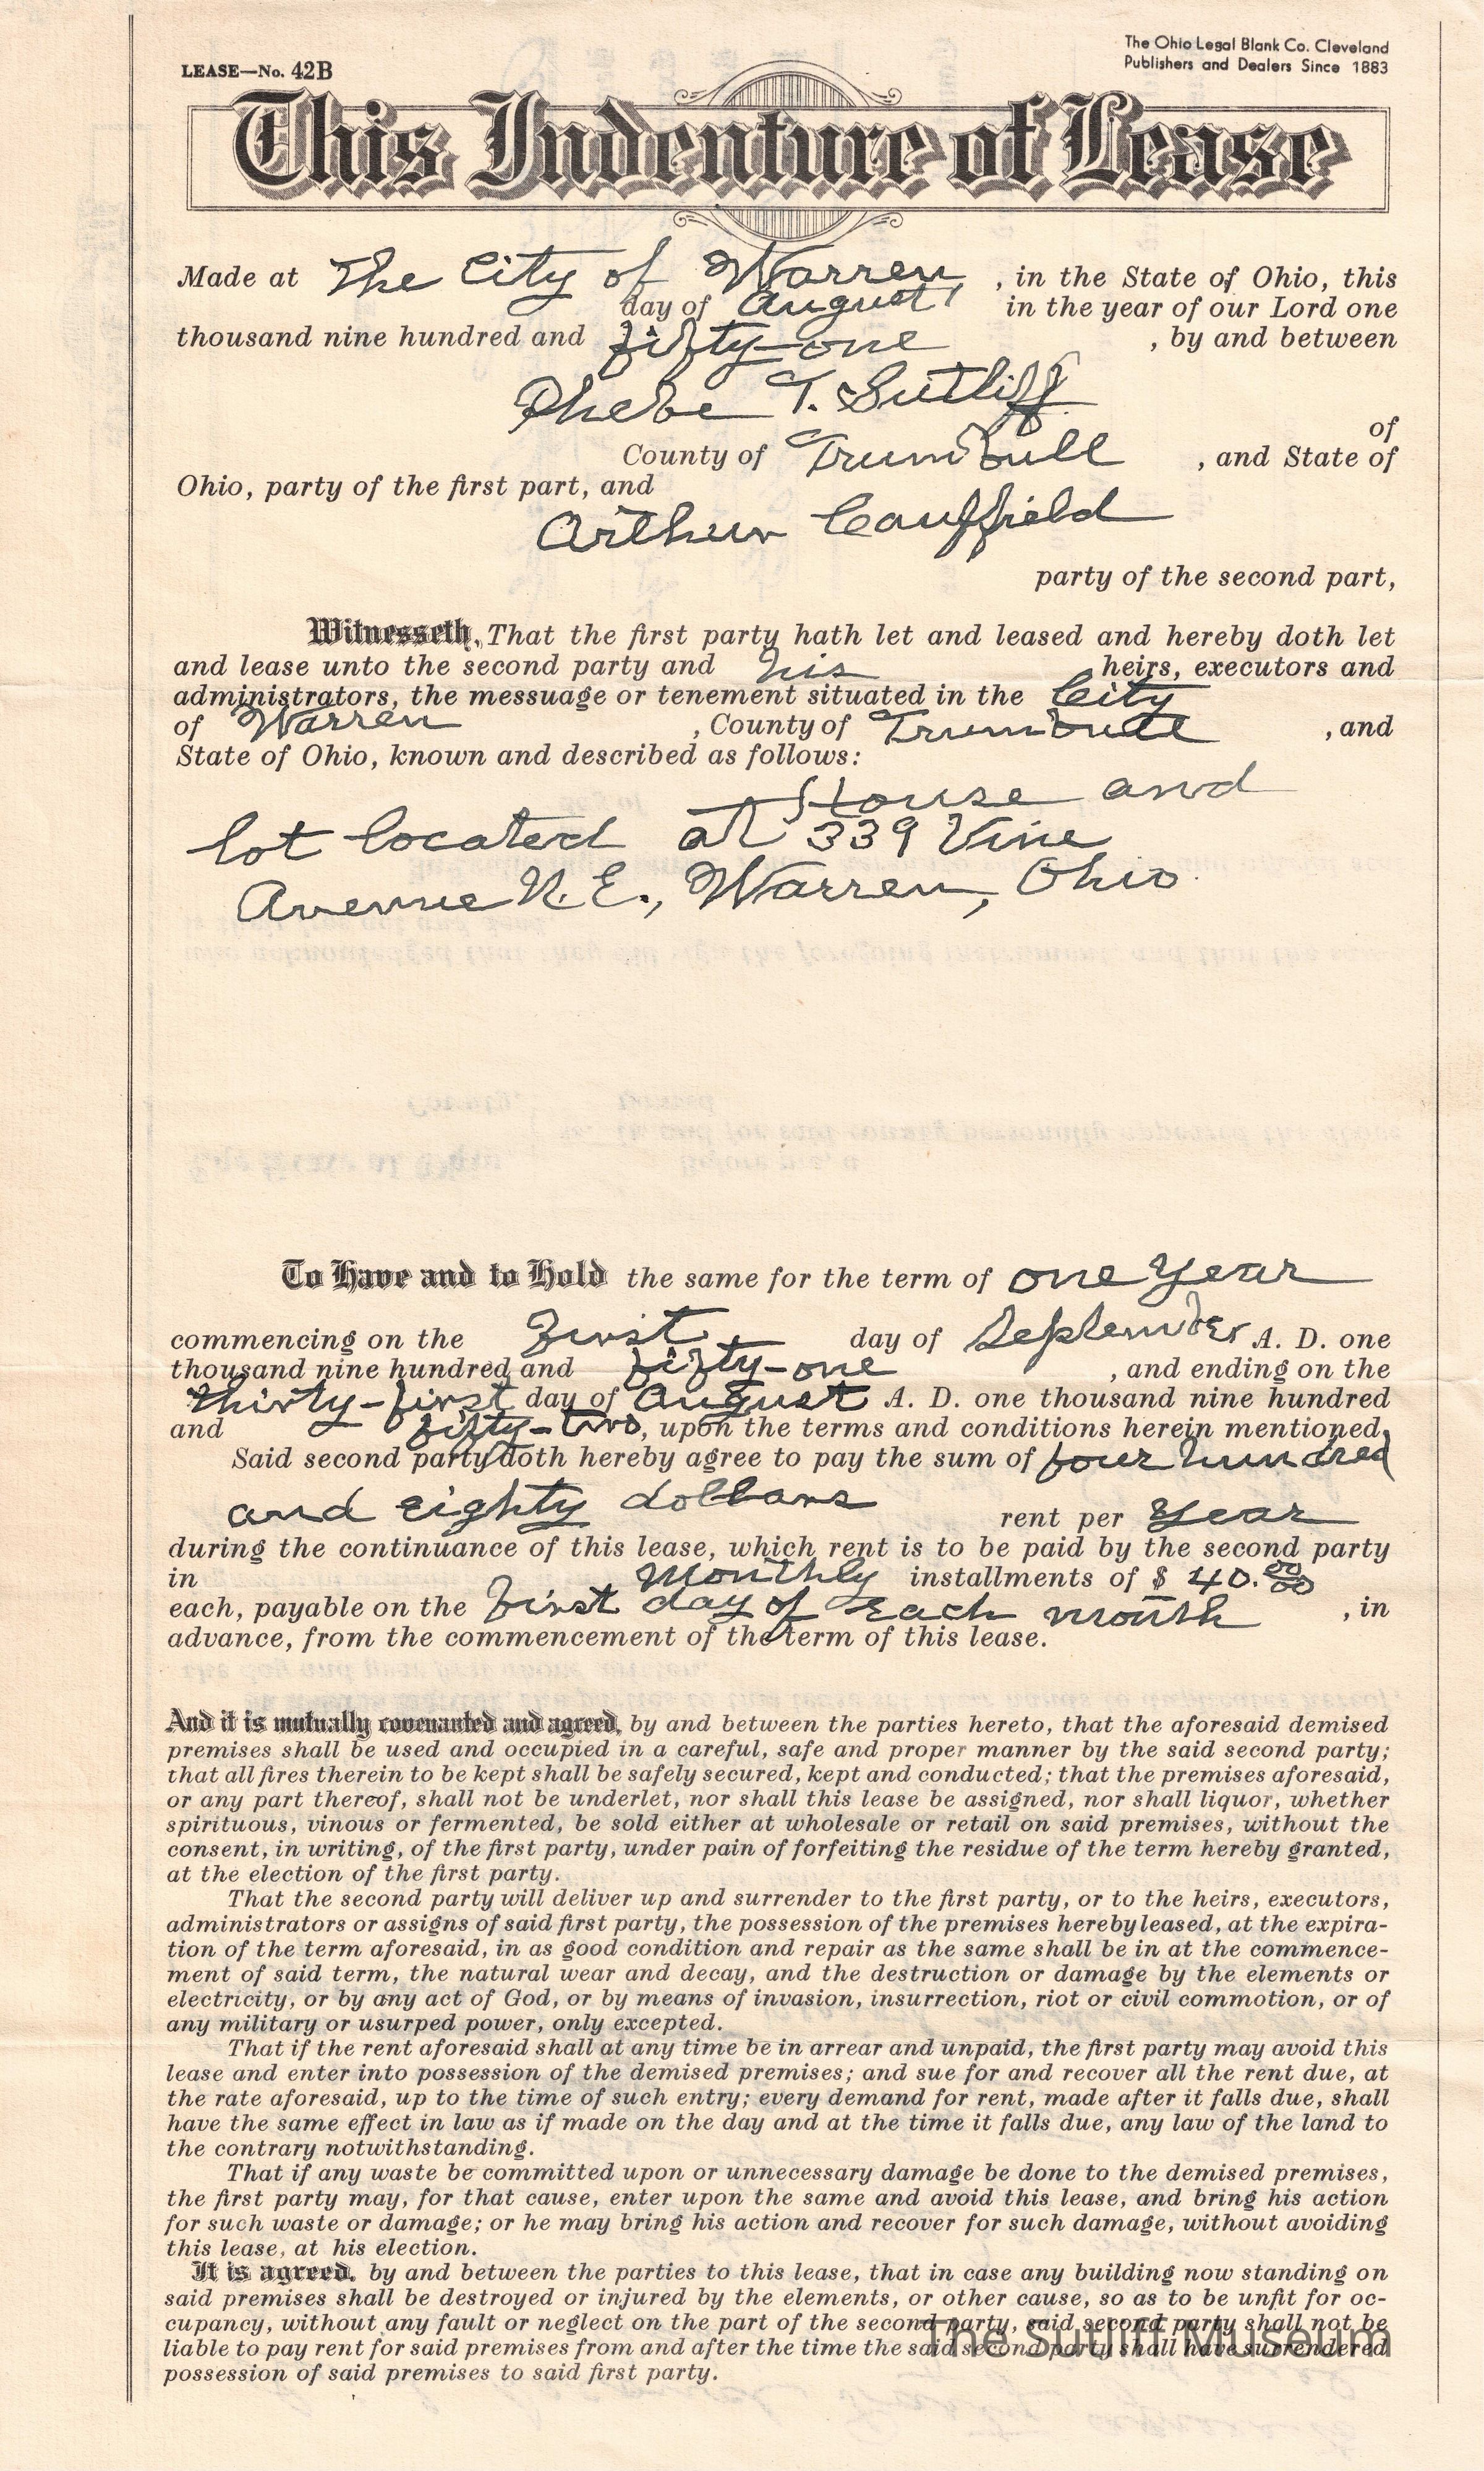 LEASE—No. 42B
The Ohio Legal Blank Co. Cleveland
Publishers and Dealers Since 1883
This Indenture of Lease
Made at The City of Warren, in the State of Ohio, this
day of August, in the year of our Lord one
thousand nine hundred and fifty-one, by and between
Phebe T. Sutliff
of
County of Trumbull, and State of
Ohio, party of the first part, and
Arthur Cauffield
party of the second part,
Witnesseth, That the first party hath let and leased and hereby doth let
and lease unto the second party and his heirs, executors and
administrators, the messuage or tenement situated in the City
of Warren, County of Trumbull, and
State of Ohio, known and described as follows:
House and
lot located at 339 Vine
Avenue N.E., Warren, Ohio.
To Have and to Hold the same for the term of one year
commencing on the First day of September A. D. one
thousand nine hundred and fifty-one, and ending on the
thirty-first day of August A. D. one thousand nine hundred
and fifty-two, upon the terms and conditions herein mentioned.
Said second party doth hereby agree to pay the sum of four hundred
and eighty dollars rent per year
during the continuance of this lease, which rent is to be paid by the second party
in Monthly installments of $ 40.00/00
each, payable on the first day of each month, in
advance, from the commencement of the term of this lease.
And it is mutually covenanted and agreed, by and between the parties hereto, that the aforesaid demised
premises shall be used and occupied in a careful, safe and proper manner by the said second party;
that all fires therein to be kept shall be safely secured, kept and conducted; that the premises aforesaid,
or any part thereof, shall not be underlet, nor shall this lease be assigned, nor shall liquor, whether
spirituous, vinous or fermented, be sold either at wholesale or retail on said premises, without the
consent, in writing, of the first party, under pain of forfeiting the residue of the term hereby granted,
at the election of the first party.
That the second party will deliver up and surrender to the first party, or to the heirs, executors,
administrators or assigns of said first party, the possession of the premises hereby leased, at the expira-
tion of the term aforesaid, in as good condition and repair as the same shall be in at the commence-
ment of said term, the natural wear and decay, and the destruction or damage by the elements or
electricity, or by any act of God, or by means of invasion, insurrection, riot or civil commotion, or of
any military or usurped power, only excepted.
That if the rent aforesaid shall at any time be in arrear and unpaid, the first party may avoid this
lease and enter into possession of the demised premises; and sue for and recover all the rent due, at
the rate aforesaid, up to the time of such entry; every demand for rent, made after it falls due, shall
have the same effect in law as if made on the day and at the time it falls due, any law of the land to
the contrary notwithstanding.
That if any waste be committed upon or unnecessary damage be done to the demised premises,
the first party may, for that cause, enter upon the same and avoid this lease, and bring his action
for such waste or damage; or he may bring his action and recover for such damage, without avoiding
this lease, at his election.
It is agreed, by and between the parties to this lease, that in case any building now standing on
said premises shall be destroyed or injured by the elements, or other cause, so as to be unfit for oc-
cupancy, without any fault or neglect on the part of the second party, said second party shall not be
liable to pay rent for said premises from and after the time the said second party shall have surrendered
possession of said premises to said first party.
The Sutliff Museum